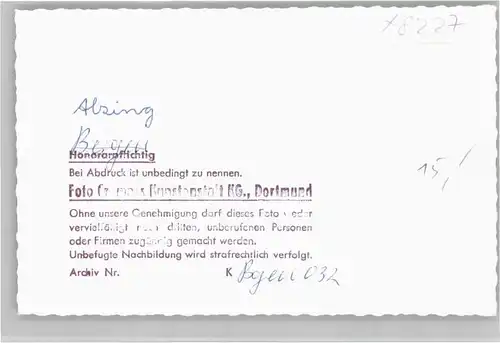 x8227
Alzing
Bergen
Honorarpflichtig
Bei Abdruck ist unbedingt zu nennen.
Foto Cramers Kunstanstalt KG., Dortmund
15,-
Ohne unsere Genehmigung darf dieses Foto weder
vervielfältigt noch dritten, unberufenen Personen
oder Firmen zugängig gemacht werden.
Unbefugte Nachbildung wird strafrechtlich verfolgt.
Archiv Nr. K Bgen 032